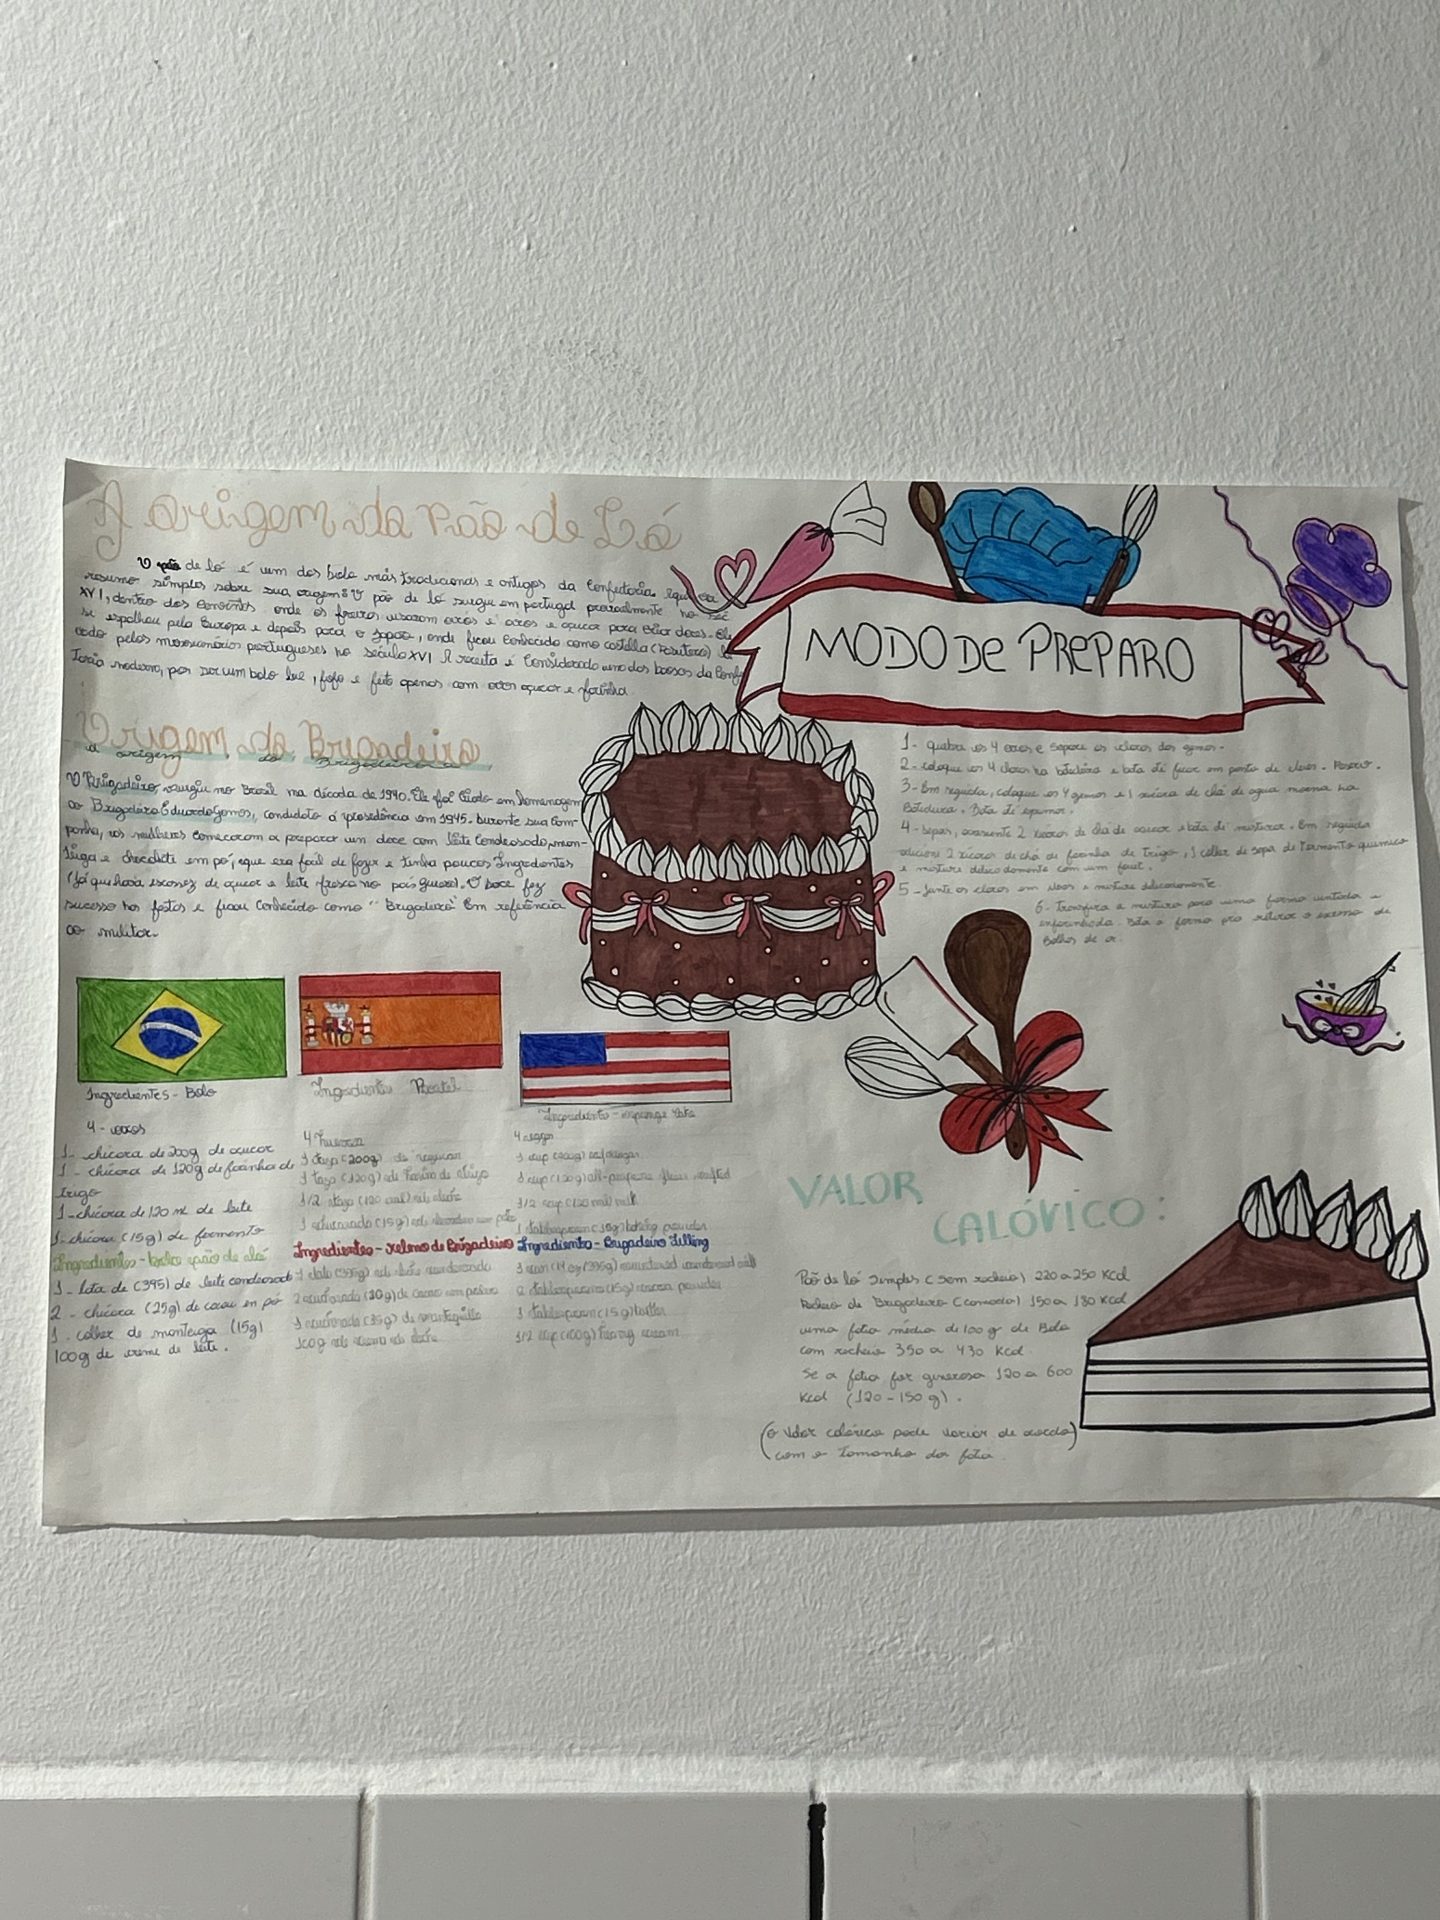 A origem do Pão de Ló
O pão de ló é um dos bolo mais tradicionas e antigos da Confeitaria. Aqui
resumo simples sobre sua origem: O pão de ló surgiu em portugal no séc
XVI, dentro dos conventos onde os freiras usavam ovos e açucar para criar doces. Ele
se espalhou pela Europa e depois para o Japão, onde ficou conhecido como
pelos missionários portugueses no século XVI A receita é considerado uma dos bases da Confei
taria moderna, por ser um bolo leve, fofo e feito apenas com ovos açucar e farinha
Origem do Brigadeiro
a origem do Brigadeiro
O Brigadeiro, surgiu no Brasil na década de 1940. Ele foi criado em homenagem
ao Brigadeiro Eduardo Gomes, candidato à presidência em 1945. Durante sua Com-
panha, as mulheres começaram a preparar um doce com leite Condensado, man-
teiga e chocolate em pó, que era facil de fazer e tinha poucos Ingredientes
(Já que havia escassez de açucar e leite fresco no pós guerra). O doce fez
sucesso nas festas e ficou conhecido como "Brigadeiro" Em referência
ao militar.
Ingredientes - Bolo
4 - ovos
1 - chicora de 200g de açucar
1 - chicora de 120g de farinha de
trigo
1 - chicora de 120 ml de leite
1 - chicora (15g) de fermento
Ingredientes -
1 - lata de (395) de leite condensado
2 - chicora (25g) de cacau en pó
1 - colher de manteiga (15g)
100g de creme de leite.
Ingredientes
4 huevos
1 taza (200g) de
1 taza (120g) de harina de
1/2 taza (120 ml) de leche
1 cucharada (15g) de
Ingredientes - relleno de Brigadeiro
1 lata (395g) de leche condensada
2 cucharada (20g) de cacao em polvo
1 cucharada (15g) de
100g de crema de leche
Ingredients -
4 eggs
1 cup (200g) sugar
1 cup (120g) all-purpose flour
1/2 cup (120 ml) milk
1 tablespoon (15g) baking powder
Ingredients - Brigadeiro Filling
1 can (14 oz) (395g) sweetened condensed milk
2 tablespoons (15g) cocoa powder
1 tablespoon (15g) butter
1/2 cup (100g) heavy cream
MODO DE PREPARO
1 - quebre os 4 ovos e separe os claras das gemas.
2 - coloque os 4 claras na batedeira e bata até ficar em ponto de claras. Reserv.
3 - Em seguida, coloque as 4 gemas e 1 xicara de chá de agua morna na
Batedeira. Bata té
4 - Depois, acrescente 2 xicaras de chá de açucar e bata té misturar. Em seguida
adicione 2 xicaras de chá de farinha de trigo, 1 colher de sopa de fermento químico
e misture delicadamente com um fouet.
5 - Junte as claras em neve e misture delicadamente
6 - Transfira a mistura para uma forma untada e
enfarinhada. Bata a forma pra retirar o excesso de
Bolhas de ar.
VALOR
CALÓRICO:
Pão de ló Simples (sem recheio) 220 a 250 Kcal
Recheio de Brigadeiro (camada) 150 a 180 Kcal
uma fatia média de 100 g de Bolo
com recheio 350 a 430 Kcal.
Se a fatia for generosa 120 a 600
Kcal (120 - 150 g).
(o valor calórico pode variar de acordo)
com o tamanho da fatia